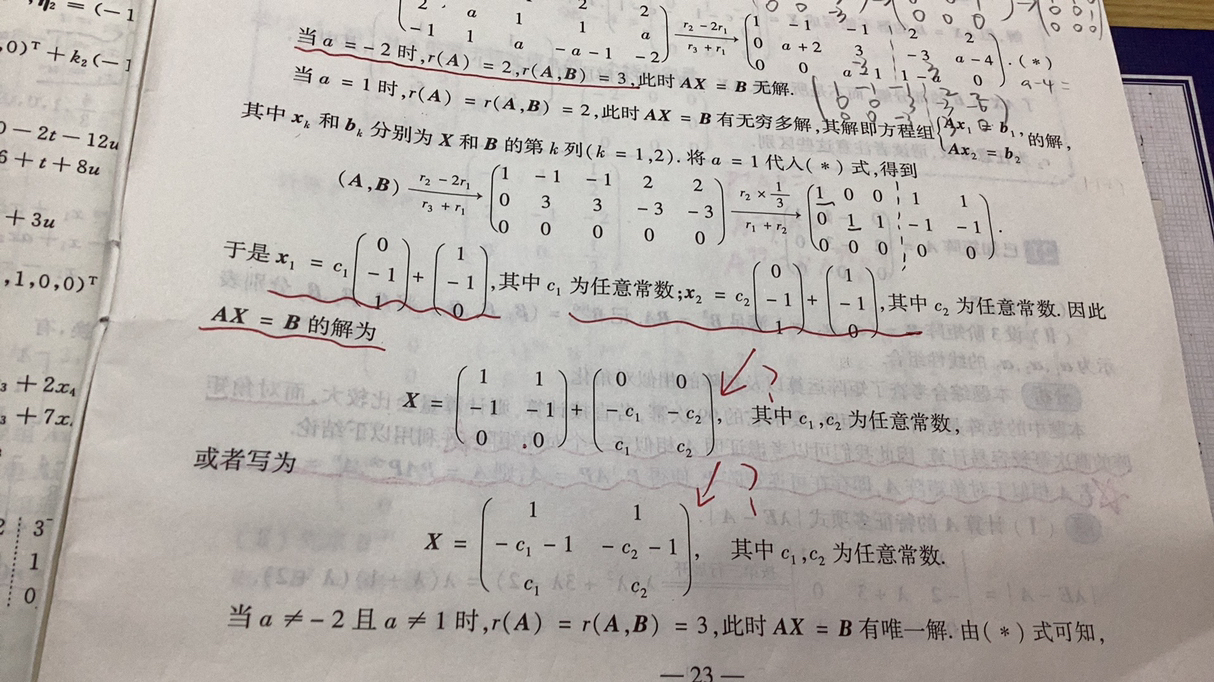 η₂ = (-1
,0)ᵀ + k₂(-1
0 - 2t - 12u
6 + t + 8u
+ 3u
,1,0,0)ᵀ
₃ + 2x₄
₃ + 7x
2 3
1
0
2 a 1 2 2
-1 1 a -a-1 -2
r₂ - 2r₁
r₃ + r₁
1 -1 -1 2 2
0 a+2 3 -3 a-4 . (*)
0 0 a-1 1-a 0
a-4=
当 a = -2 时, r(A) = 2, r(A,B) = 3, 此时 AX = B 无解.
当 a = 1 时, r(A) = r(A,B) = 2, 此时 AX = B 有无穷多解, 其解即方程组 {Ax₁ = b₁, Ax₂ = b₂ 的解,
其中 xₖ 和 bₖ 分别为 X 和 B 的第 k 列(k = 1,2). 将 a = 1 代入(*)式, 得到
(A,B) r₂ - 2r₁ r₃ + r₁ → (1 -1 -1 2 2; 0 3 3 -3 -3; 0 0 0 0 0) r₂ × 1/3 r₁ + r₂ → (1 0 0 1 1; 0 1 1 -1 -1; 0 0 0 0 0).
于是 x₁ = c₁(0; -1; 1) + (1; -1; 0), 其中 c₁ 为任意常数; x₂ = c₂(0; -1; 1) + (1; -1; 0), 其中 c₂ 为任意常数. 因此
AX = B 的解为
X = (1 1; -1 -1; 0 0) + (0 0; -c₁ -c₂; c₁ c₂), 其中 c₁,c₂ 为任意常数,
?
或者写为
?
X = (1 1; -c₁-1 -c₂-1; c₁ c₂), 其中 c₁,c₂ 为任意常数.
当 a ≠ -2 且 a ≠ 1 时, r(A) = r(A,B) = 3, 此时 AX = B 有唯一解. 由(*)式可知,
— 23 —